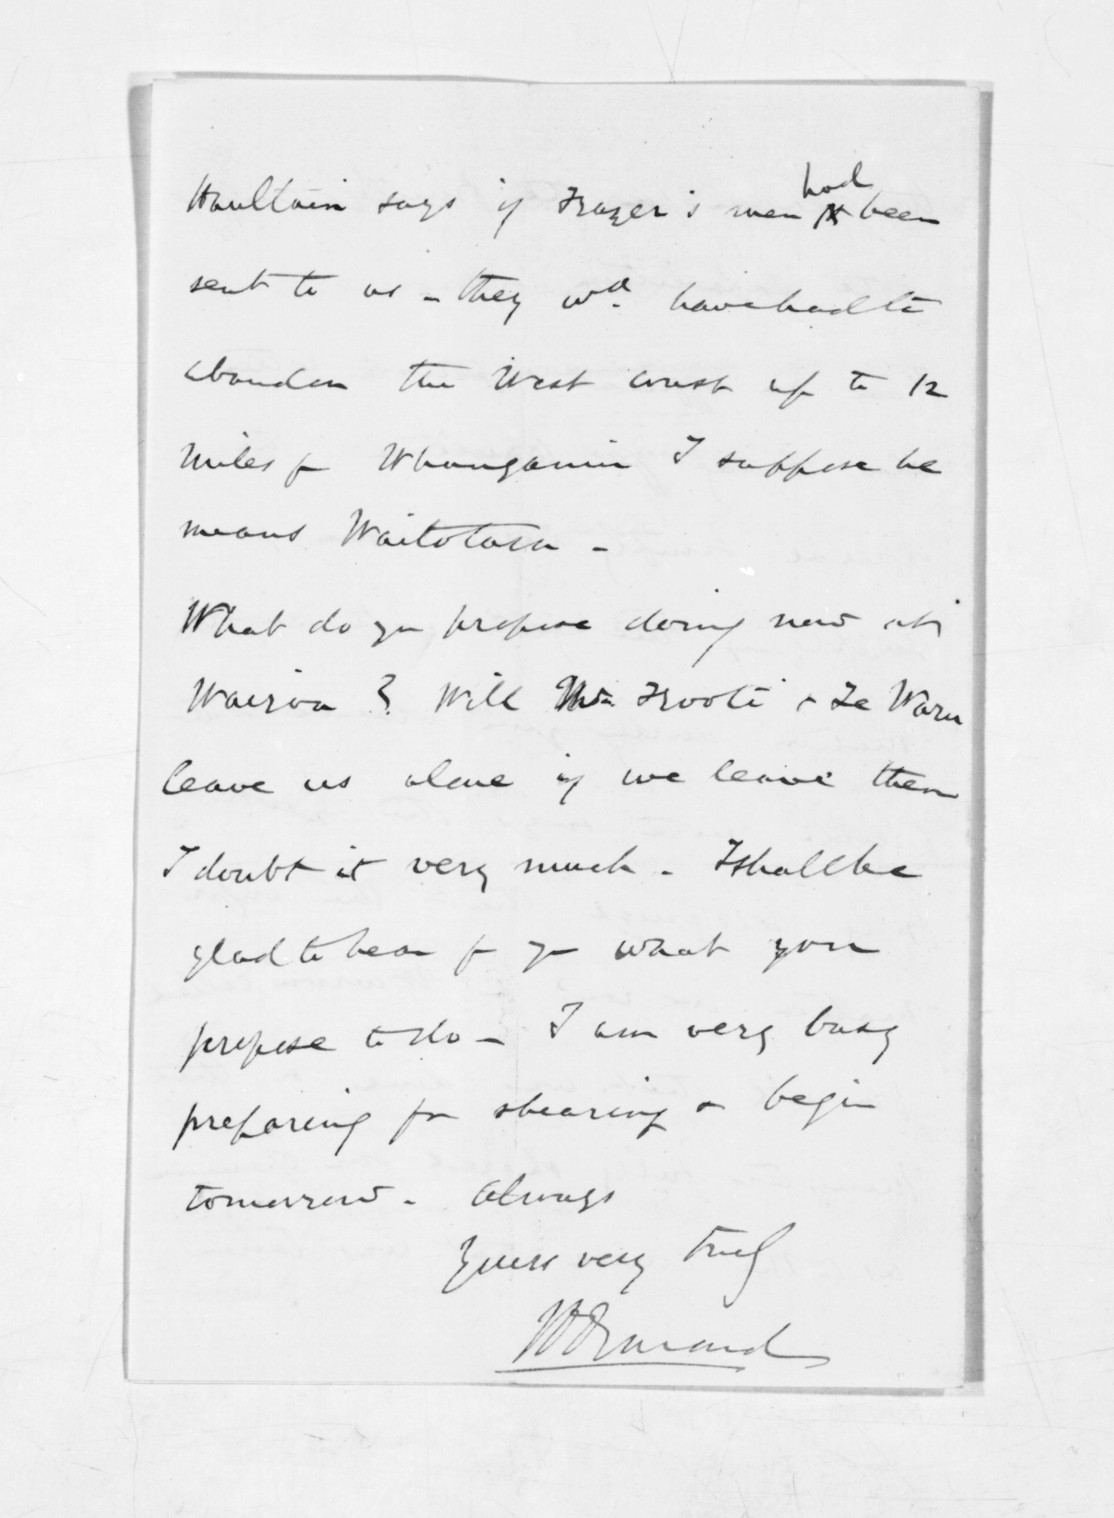 Haultain says if Frazer's men had been
sent to us - they wd. have had to
abandon the West coast up to 12
miles fr Whanganui I suppose he
means Waitotara -
What do yu propose doing now at
Wairoa ? Will Kooti & Te Waru
leave us alone if we leave them
I doubt it very much - I shall be
glad to hear fr yu what you
propose to do - I am very busy
preparing for shearing & begin
tomorrow - Always
Yours very truly
JD Ormond